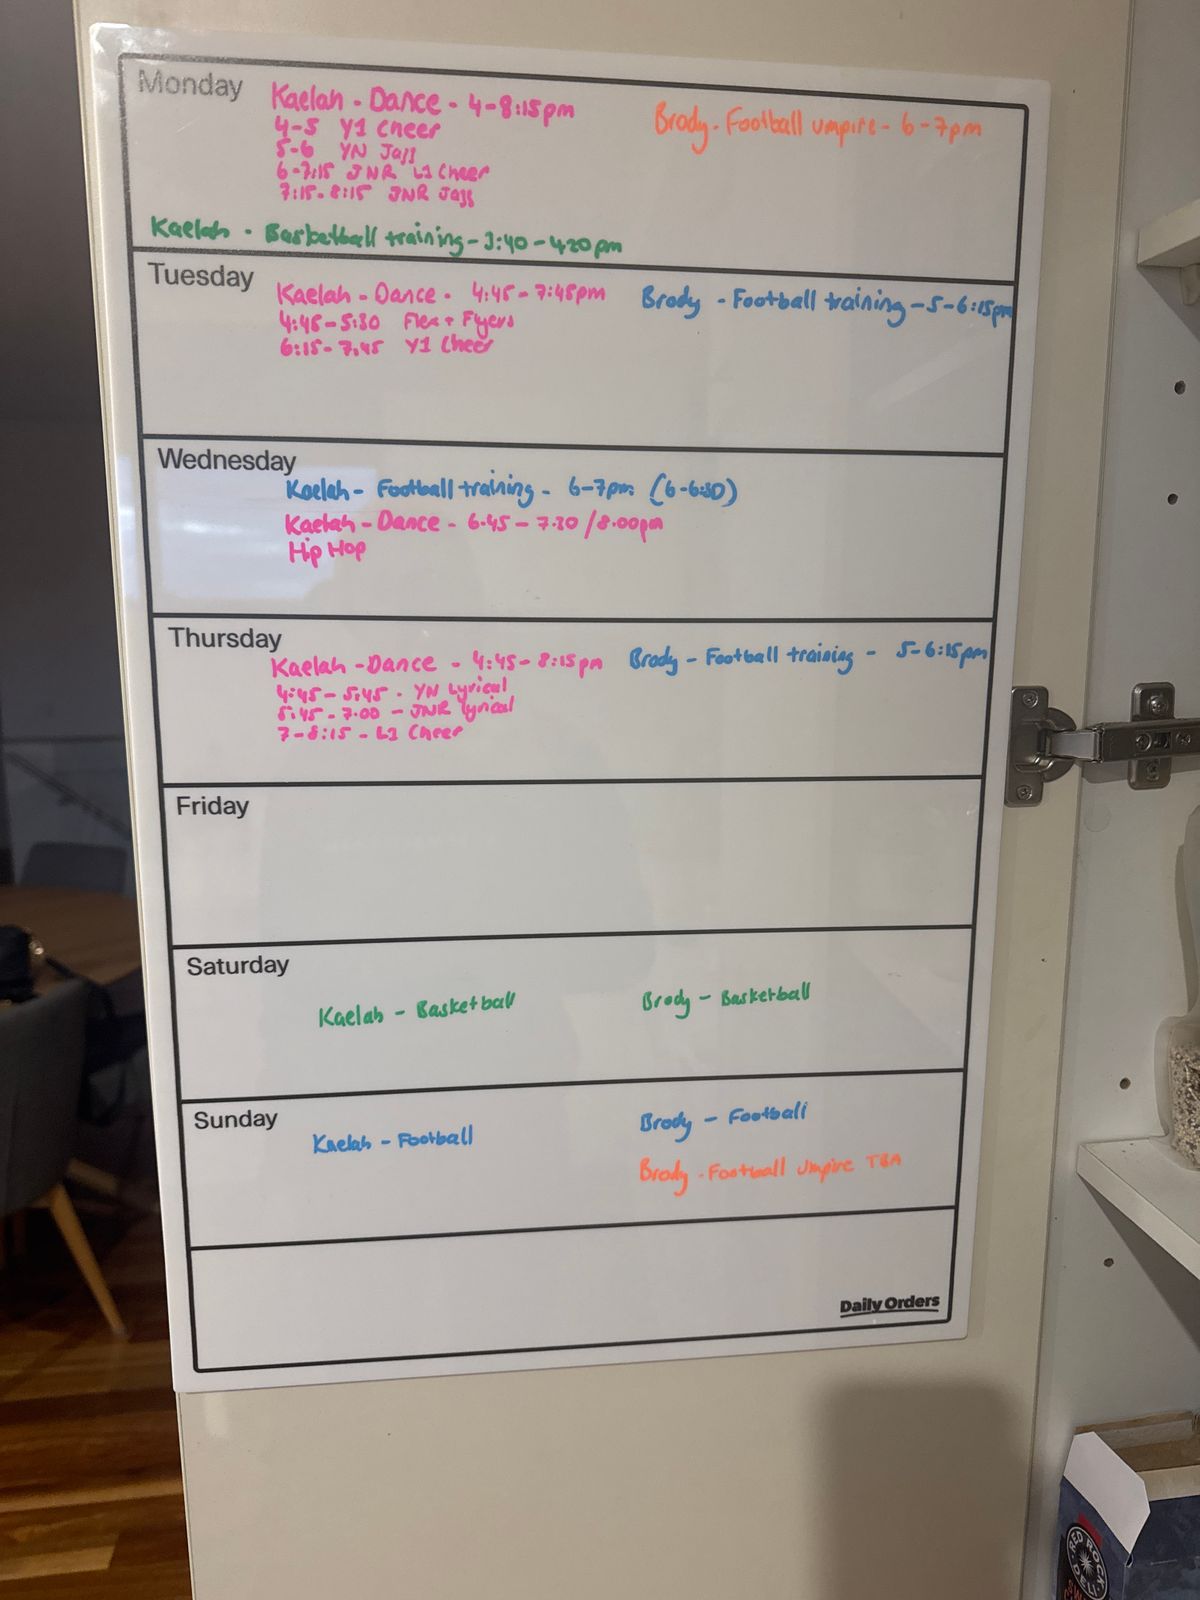 Monday
Kaelah - Dance - 4-8:15pm
4-5 Y1 Cheer
5-6 YN Jazz
6-7:15 JNR L1 Cheer
7:15-8:15 JNR Jazz
Brody - Football umpire - 6-7pm
Kaelah - Basketball training - 3:40 - 4:20pm
Tuesday
Kaelah - Dance - 4:45 - 7:45pm
4:45-5:30 Flex + Flyers
6:15-7:45 Y1 Cheer
Brody - Football training - 5-6:15pm
Wednesday
Kaelah - Football training - 6-7pm (6-6:30)
Kaelah - Dance - 6.45 - 7.30 / 8.00pm
Hip Hop
Thursday
Kaelah - Dance - 4:45 - 8:15pm
4:45 - 5:45 - YN Lyrical
5:45 - 7.00 - JNR Lyrical
7-8:15 - L1 Cheer
Brody - Football training - 5-6:15pm
Friday
Saturday
Kaelah - Basketball
Brody - Basketball
Sunday
Kaelah - Football
Brody - Football
Brody - Football Umpire TBA
Daily Orders
RED ROCK
DELI